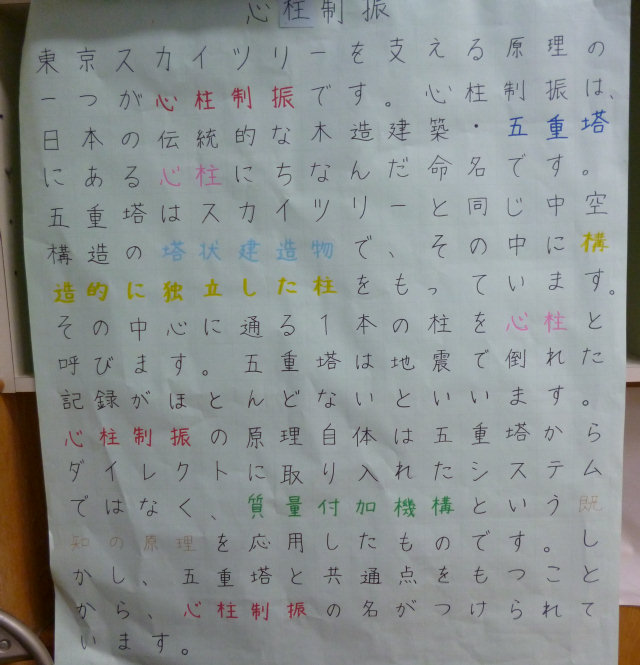 心柱制振
東京スカイツリーを支える原理の
一つが心柱制振です。心柱制振は、
日本の伝統的な木造建築・五重塔
にある心柱にちなんだ命名です。
五重塔はスカイツリーと同じ中空
構造の塔状建造物で、その中に構
造的に独立した柱をもっています。
その中心に通る1本の柱を心柱と
呼びます。五重塔は地震で倒れた
記録がほとんどないといいます。
心柱制振の原理自体は五重塔から
ダイレクトに取り入れたシステム
ではなく、質量付加機構という既
知の原理を応用したものです。し
かし、五重塔と共通点をもつこと
から、心柱制振の名がつけられて
います。